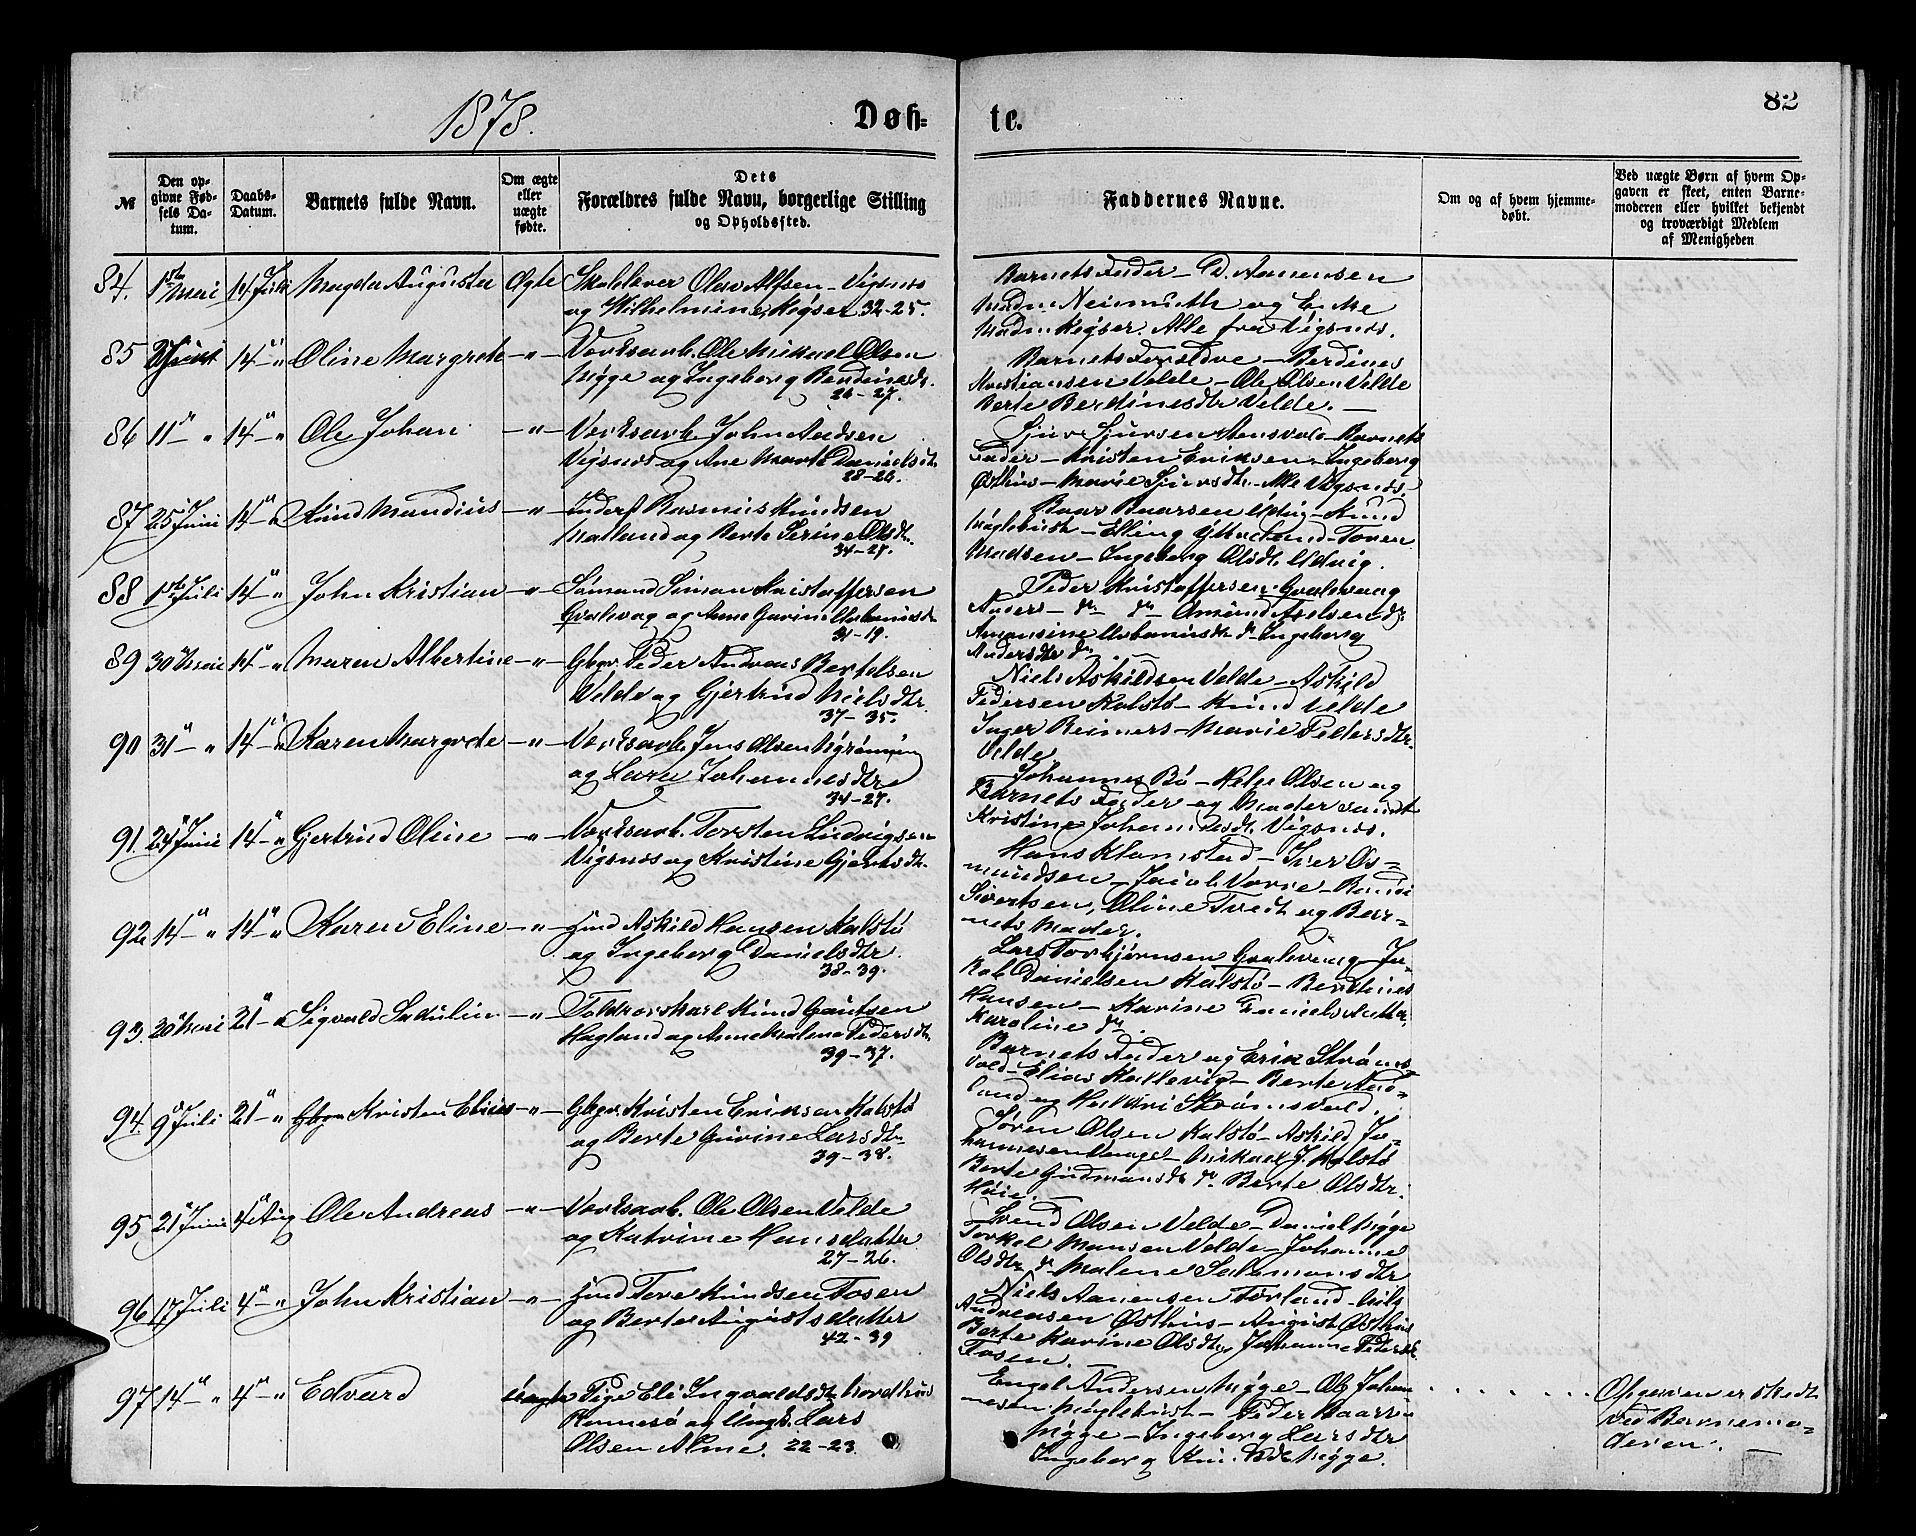 1878.
Døb-
te.
82
№
Den op-
givne Fød-
sels Da-
tum.
Daabs-
Datum.
Barnets fulde Navn.
Om ægte
eller
uægte
fødte.
Dets
Forældres fulde Navn, borgerlige Stilling
og Opholdssted.
Faddernes Navne.
Om og af hvem hjemme-
døbt.
Ved uægte Børn af hvem Op-
gaven er skeet, enten Barne-
moderen eller hvilket bekjendt
og troværdigt Medlem
af Menigheden
84. 1ste Mai 14 Juli Magda Augusta Ægte
Olav Alfsen - Vigsnes
og Wilhelmine Keyser 32-25.
Barnets Fader - D. Aanensen
Madm. Neimuth og
Madm Keyser. Alle fra Vigsnes.
85 14 - " Oline Margrete - " -
Værksarb. Ole Mikael Olsen
Mygge og Ingeborg Berdinesdtr.
26-27.
Barnets Forældre - Berdines
Kristiansen Velde - Ole Olsen Velde
Berte Berdinesdtr Velde. -
86 11 - " 14 - " Ole Johan - " -
Værksarb. John Andsen
Vigsnes og Ane Marte Danielsdt.
28-26.
Sjur Sjursen - Barnets
Fader - Kristen Eriksen - Ingeborg
Østhus - Marie Sjursdtr. Alle Vigsnes.
87 25 Juni 14 - " Knud Mandius - " -
Inderst Rasmus Knudsen
og Berte Serine Olsdtr.
34-27.
Baar Baarsen Udvig - Knud
Møglebust - Elling - Toren
Madsen - Ingeborg Olsdt. Udvig.
88 1ste Juli 14 - " John Kristian - " -
Sømand Simon Kristoffersen
Gvalavag og Anne Gurine Urbanusdtr
31-19.
Peder Kristoffersen Gvalavaag
Anders - do do - Osmund do
Amansine Urbanusdtr do Ingeborg
Andersdtr do
89 30 Mai 14 - " Maren Albertine - " -
Gbgr. Peder Andreas Bertelsen
Velde og Gjertrud Nielsdtr
37-35.
Niels Askildsen Velde - Askild
Pedersen Kalstø - Knud Velde
Inger Reiners - Marie Pedersdtr.
Velde
90 31 - " 14 - " Karen Margrete - " -
Værksarb. Jens Olsen
og Lava Johannesdtr
34-27.
Johannes Bø - Helge Olsen og
Barnets Fader og Moder samt
Kristine Johannesdt. Vigsnes.
91. 24 Juni 14 - " Gjertrud Oline - " -
Værksarb. Torsten Ludvigsen
Vigsnes og Kristine Gjertsdtr.
Hans Klomstad - Iver Os-
mundsen - Jacob Varie -
Sivertsen, Oline Tvedt og Bar-
nets Moder.
92 14 - " 14 - " Karen Eline - " -
Husmd Askild Hansen Kalstø
og Ingeborg Danielsdtr.
38-39.
Lars Torbjørnsen Gvalavaag - Ja-
kob Danielsen Kalstø - Berdines
Hansen - Karine Danielsdatter,
Karoline do
93. 20 Mai 21 - " Sigvald - " -
Knud Gautsen
Hagland og Anne Malena Pedersdtr.
39-37.
Barnets Fader og Erik Strøms
vold - Elias Kallevig - Berte
land og Strømsvold.
94. 9 Juli 21 - " Kristen Elius - " -
Gbgr. Kristen Eriksen Kalstø
og Berte Gurine Larsdtr
39-38.
Søren Olsen Kalstø - Askild Jo-
hannesen - Mikael J. Kalstø
Berte Gudmansdtr do Berte Olsdtr.
Høie.
95 21 Juni 4 Aug Ole Andreas - " -
Værksarb. Ole Olsen Velde
og Katrine Hansdatter
27-26.
Svend Olsen Velde - Daniel Mygge
Torkel Monsen Velde - Johanne
Olsdtr do Malene Salamonsdtr
96 17 Juli 4 - " John Kristian - " -
Husmd Tore Knudsen Fosen
og Berte Augustsdatter
42-39
Niels Aanensen Forland -
Andreasen Østhus - August Østhus
Berte Karine Olsdtr, Johanne Pedersdtr.
Fosen.
97 14 - " 4 - " Edvard
Uægte
Pige Eli Ingvaldsdtr
og Ungk. Lars
Olsen Alme. 22-23
Engel Andersen Mygge - Ole Johan-
nesen Møglebust - Peder Baarsen
Mygge - Ingeborg Larsdtr
Ingeborg Mygge.
Opgaven er skedt
ved Barnemo-
deren.